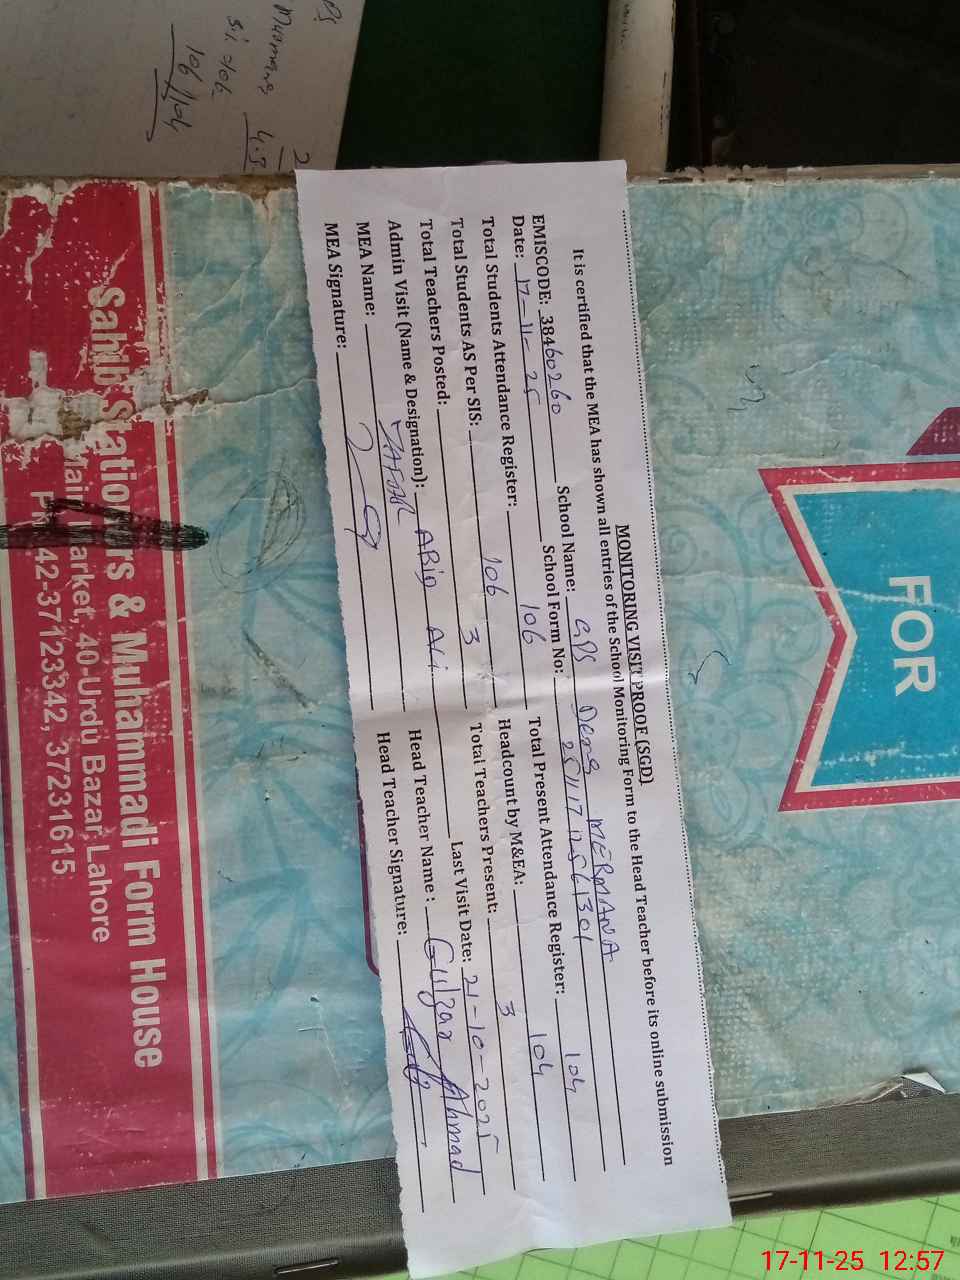 MONITORING VISIT PROOF (SGD)
It is certified that the MEA has shown all entries of the School Monitoring Form to the Head Teacher before its online submission
EMISCODE: 38460260 School Name: GPS MERMANA
Date: 17-11-25 School Form No:
Total Students Attendance Register: 106 Total Present Attendance Register: 104
Total Students AS Per SIS: 106 Headcount by M&EA: 104
Total Teachers Posted: 3 Total Teachers Present: 3
Admin Visit (Name & Designation): ABid Ali Last Visit Date: 21-10-2025
MEA Name: ZAFAR Head Teacher Name : Gulzar Ahmad
MEA Signature: Head Teacher Signature:
FOR
Sahib Stationers & Muhammadi Form House
Main Market, 40-Urdu Bazar, Lahore
42-37123342, 37231615
106/104
17-11-25 12:57